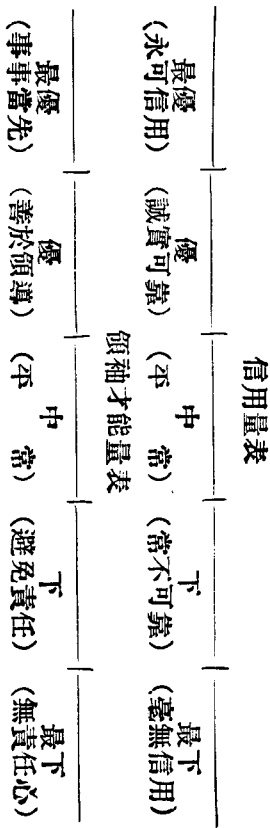 信用量表
最優 優 中 下 最下
(永可信用) (誠實可靠) (平常) (常不可靠) (毫無信用)
領袖才能量表
最優 優 中 下 最下
(事事當先) (善於領導) (平常) (避免責任) (無責任心)